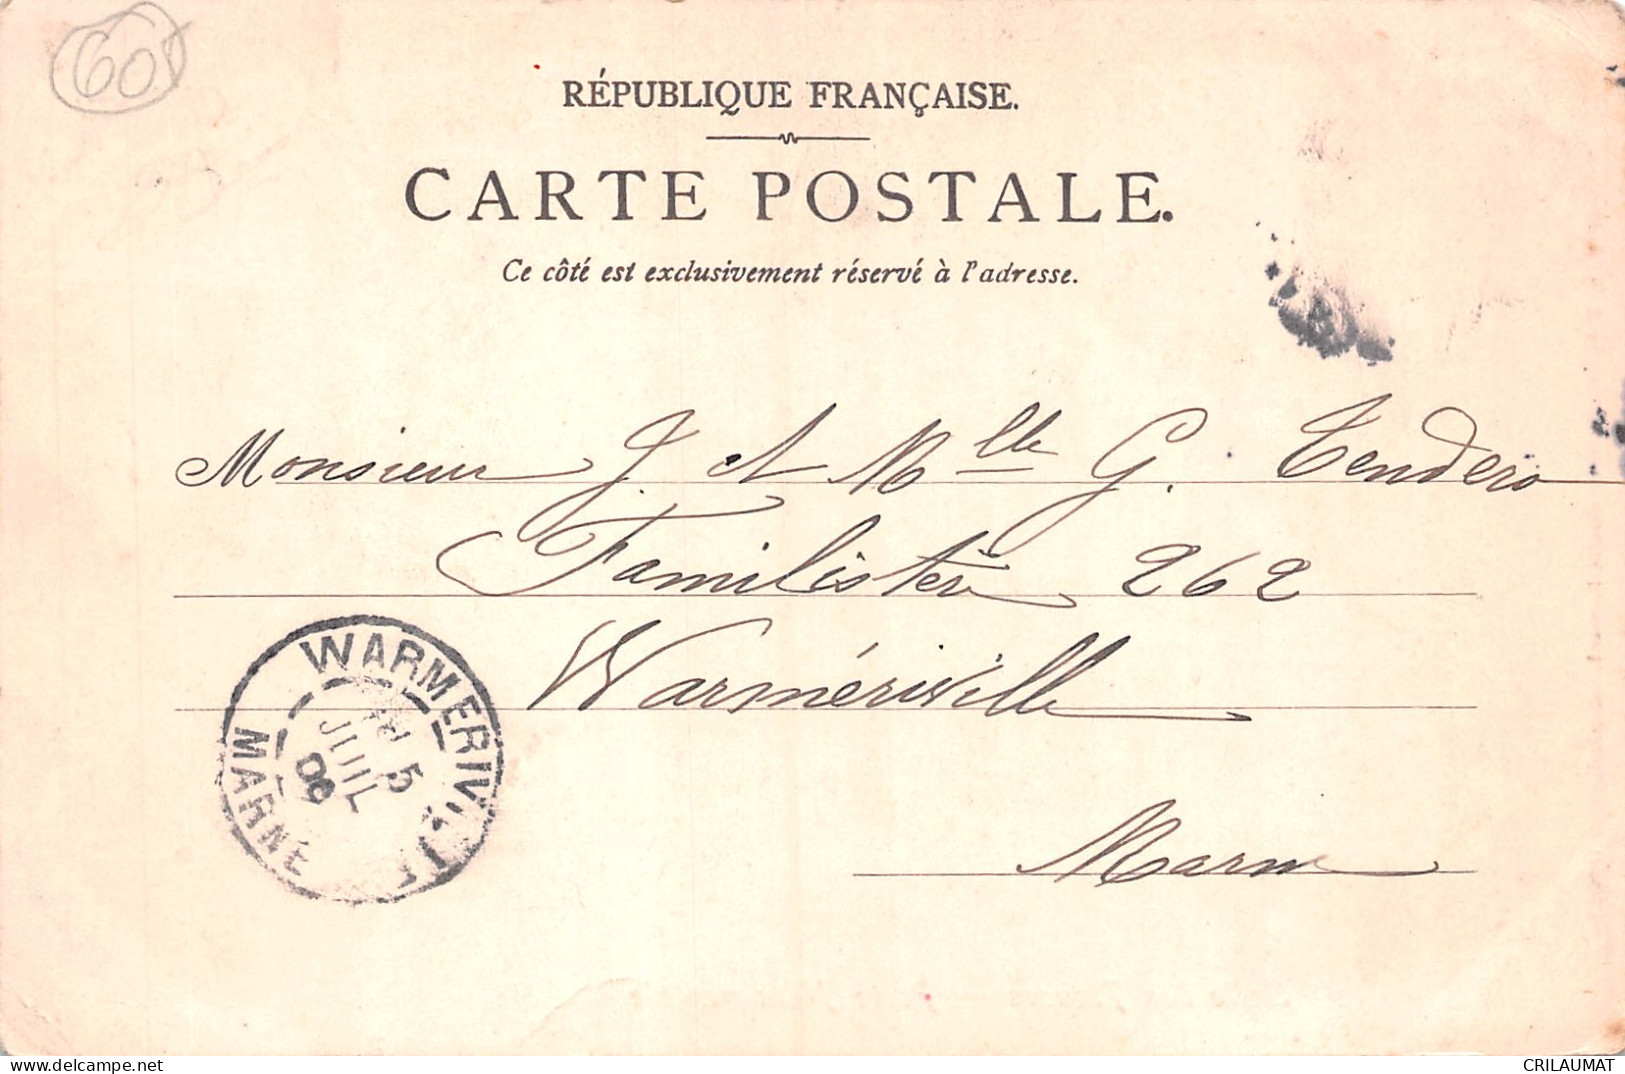 60
RÉPUBLIQUE FRANÇAISE.
CARTE POSTALE.
Ce côté est exclusivement réservé à l'adresse.
Monsieur J. et Mlle G. Tendero
Familistère 262
Warmériville
Marne
WARMERIVILLE
5
JUIL
MARNE
delcampe.net
CRILAUMAT